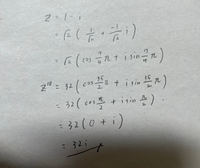 z = 1 - i
= √2 ( 1/√2 + -1/√2 i )
= √2 ( cos 7/4 π + i sin 7/4 π )
z¹⁰ = 32 ( cos 35/2 π + i sin 35/2 π )
= 32 ( cos π/2 + i sin π/2 )
= 32 ( 0 + i )
= 32i